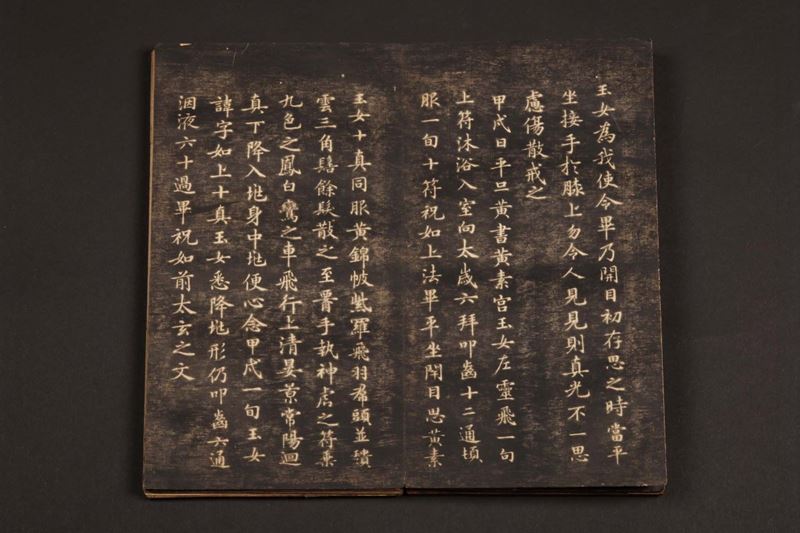 玉女為我使令畢乃開目初存思之時當平
坐接手於膝上勿令人見見則真光不一思
慮傷散戒之
甲戌日平旦黃書黃素宮玉女左靈飛一旬
上符沐浴入室向太歲六拜叩齒十二通頓
服一旬十符祝如上法畢平坐閇目思黃素
玉女十真同服黃錦帔紫羅飛羽帬頭並穨
雲三角髻餘髮散之至署手執神虎之符乗
九色之鳳白鸞之車飛行上清晏景常陽迴
真下降入兆身中兆便心念甲戌一旬玉女
諱字如上十真玉女悉降兆形仍叩齒六通
㕮液六十過畢祝如前太玄之文